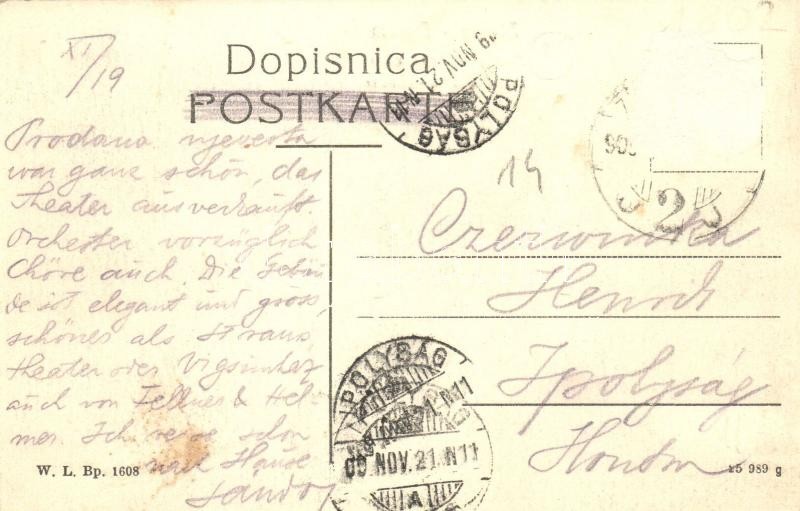 XI/19
Dopisnica
POSTKARTE
Prodana njevesta
war ganz schön, das
Theater ausverkauft.
Orchester vorzüglich
Chöre auch. Die Gebäu
de ist elegant und gross,
schöner als Straus
theater oder Vigszinház
auch von Fellner & Hel-
mer. Ich reise schon
nach Hause
Sándor
14
Henrik
Ipolyság
Hontm
IPOLYSÁG
909 NOV. 21. N11
A
IPOLYSÁG
09 NOV. 21. N11
2
W. L. Bp. 1608
15 989 g